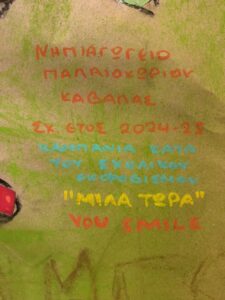 ΝΗΠΙΑΓΩΓΕΙΟ
ΠΑΛΑΙΟΧΩΡΙΟΥ
ΚΑΒΑΛΑΣ
ΣΧ. ΕΤΟΣ 2024-25
ΚΑΜΠΑΝΙΑ ΚΑΤΑ
ΤΟΥ ΣΧΟΛΙΚΟΥ
ΕΚΦΟΒΙΣΜΟΥ
"ΜΙΛΑ ΤΩΡΑ"
YOU SMILE